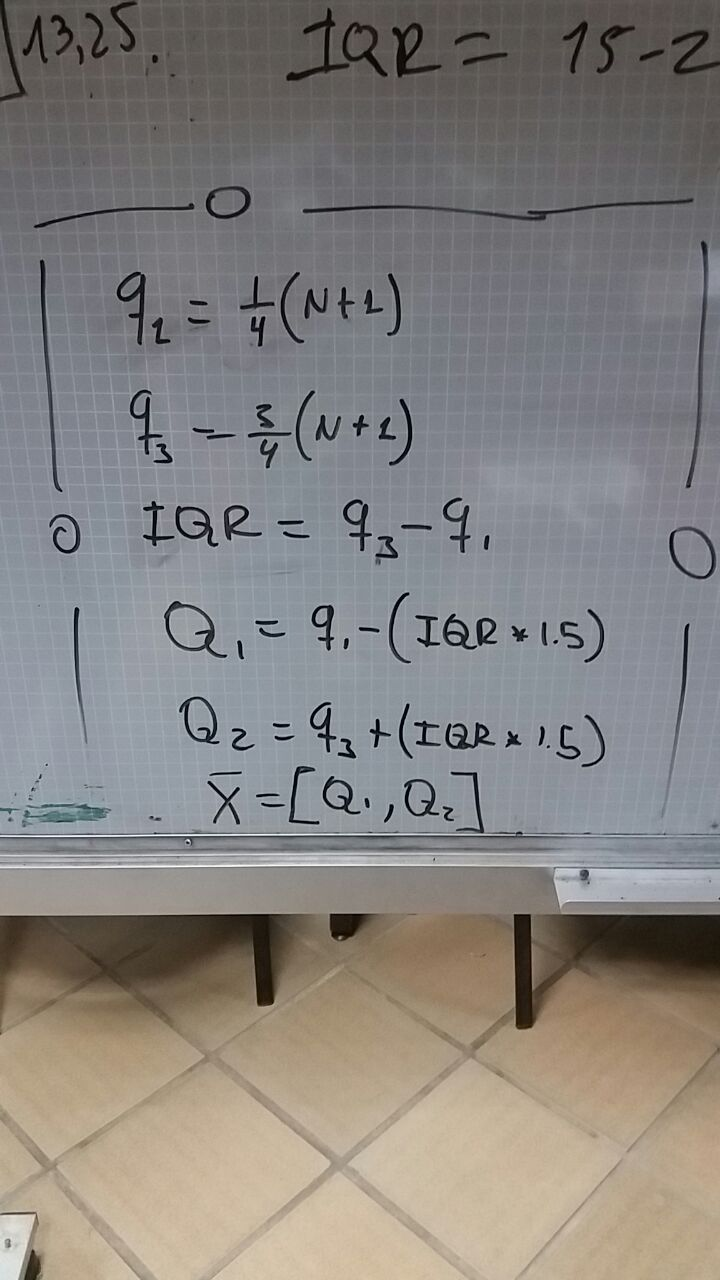 ]13,25. IQR = 15-2
q₁ = 1/4 (N+1)
q₃ = 3/4 (N+1)
IQR = q₃ - q₁
Q₁ = q₁ - (IQR * 1.5)
Q₂ = q₃ + (IQR * 1.5)
X̅ = [Q₁, Q₂]